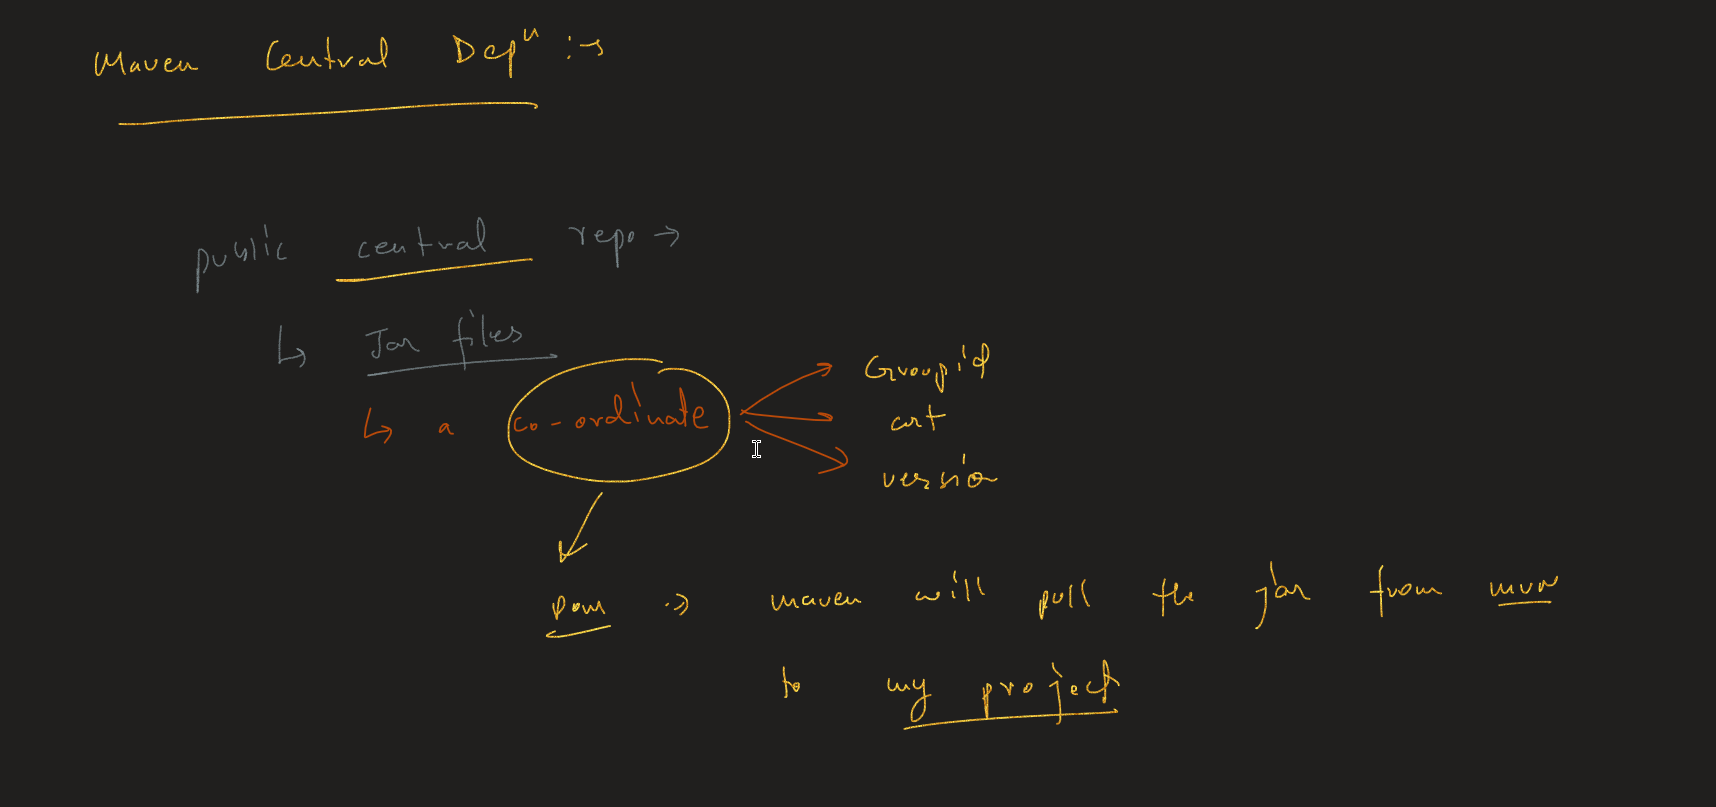 Maven Central Depn :→
public central repo →
↳ Jar files
↳ a co-ordinate
Groupid
art
version
pom :→ maven will pull the jar from mvn
to my project